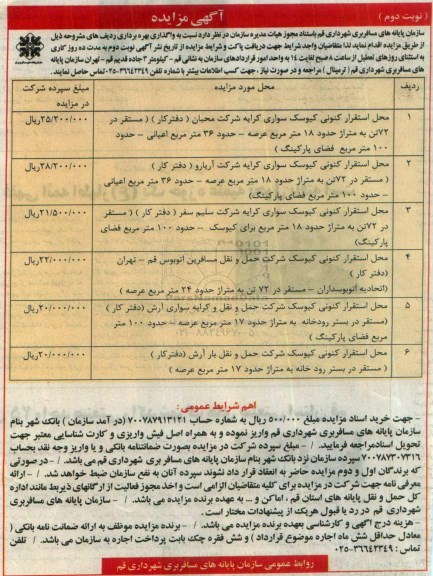 ( نوبت دوم )
آگهی مزایده
سازمان پایانه های مسافربری شهرداری قم باستناد مجوز هیات مدیره سازمان در نظر دارد نسبت به واگذاری بهره برداری ردیف های مشروحه ذیل
از طریق مزایده اقدام نماید لذا متقاضیان واجد شرایط جهت دریافت پاکت و شرایط مزایده از تاریخ نشر آگهی نوبت دوم به مدت ده روز کاری
به استثنای روزهای تعطیل از ساعت ۸ صبح لغایت ۱۴ به واحد امور قراردادهای سازمان به نشانی قم - کیلومتر ۳ جاده قدیم قم - تهران سازمان پایانه
های مسافربری شهرداری قم ( ترمینال ) مراجعه و در صورت نیاز ، جهت کسب اطلاعات بیشتر با شماره تلفن ۳۶۶۴۲۳۴۹-۰۲۵ تماس حاصل نمایند.
ردیف محل مورد مزایده مبلغ سپرده شرکت در مزایده
۱ محل استقرار کنونی کیوسک سواری کرایه شرکت محبان ( دفترکار ) ( مستقر در ۲۵/۲۰۰/۰۰۰ریال
۷۲تن به متراژ حدود ۱۸ متر مربع عرصه - حدود ۳۶ متر مربع اعیانی - حدود
۱۰۰ متر مربع فضای پارکینگ )
۲ محل استقرار کنونی کیوسک سواری کرایه شرکت آریارو ( دفتر کار ) ۲۸/۲۰۰/۰۰۰ریال
(مستقر در ۷۲تن به متراژ حدود ۱۸ متر مربع عرصه - حدود ۳۶ متر مربع اعیانی
- حدود ۱۰۰ متر مربع فضای پارکینگ)
۳ محل استقرار کنونی کیوسک سواری کرایه شرکت سلیم سفر ( دفتر کار ) ( مستقر ۲۱/۵۰۰/۰۰۰ریال
در ۷۲تن به متراژ حدود ۱۸ متر مربع برای کیوسک - حدود ۱۰۰ متر مربع فضای
پارکینگ)
۴ محل استقرار کنونی کیوسک شرکت حمل و نقل مسافرین اتوبوس قم - تهران ۲۲/۰۰۰/۰۰۰ریال
(دفتر کار )
(اتحادیه اتوبوسداران - مستقر در ۷۲ تن به متراژ حدود ۲۴ متر مربع عرصه )
۵ محل استقرار کنونی کیوسک شرکت حمل و نقل و کرایه سواری آرش (دفتر کار ) ۳۰/۰۰۰/۰۰۰ریال
(مستقر در بستر رودخانه به متراژ حدود ۱۷ متر مربع عرصه - حدود ۱۰۰ متر
مربع فضای پارکینگ )
۶ محل استقرار کنونی کیوسک شرکت حمل و نقل بار آرش (دفتر کار ) ۲۰/۰۰۰/۰۰۰ریال
( مستقر در بستر رود خانه به متراژ حدود ۱۷ متر مربع عرصه )
اهم شرایط عمومی :
- جهت خرید اسناد مزایده مبلغ ۵۰۰/۰۰۰ ریال به شماره حساب ۷۰۰۷۸۷۹۱۳۱۲۱ (در آمد سازمان ) بانک شهر بنام
سازمان پایانه های مسافربری شهرداری قم واریز نموده و به همراه اصل فیش واریزی و کارت شناسایی معتبر جهت
تحویل اسناد مراجعه فرمایید. /- مبلغ سپرده شرکت در مزایده بصورت ضمانتنامه بانکی و یا واریز وجه نقد بحساب
۷۰۰۷۸۷۳۰۷۳۱۶ سپرده سازمان نزد بانک شهر بنام سازمان پایانه های مسافربری شهرداری قم می باشد. / - در صورتی
که برندگان اول و دوم مزایده حاضر به انعقاد قرار داد نشوند سپرده آنان به نفع سازمان ضبط خواهد شد. / - ارائه
معرفی نامه جهت شرکت در مزایده برای کلیه متقاضیان الزامی است و اخذ مجوز فعالیت از ارگانهای ذیربط مانند اداره
کل حمل و نقل پایانه های استان قم ، اماکن و ... به عهده برنده مزایده می باشد. / - سازمان پایانه های مسافربری
شهرداری قم در رد یا قبول هریک از پیشنهادات مختار است .
- هزینه درج آگهی و کارشناسی بعهده برنده مزایده می باشد. / - برنده مزایده موظف به ارائه ضمانت نامه بانکی (
معادل حداقل شش ماه اجاره موضوع قرارداد ) و شش فقره چک بابت پرداخت اجاره به سازمان می باشد. / تلفن
تماس : ۳۶۶۴۲۳۴۹-۰۲۵
روابط عمومی سازمان پایانه های مسافربری شهرداری قم